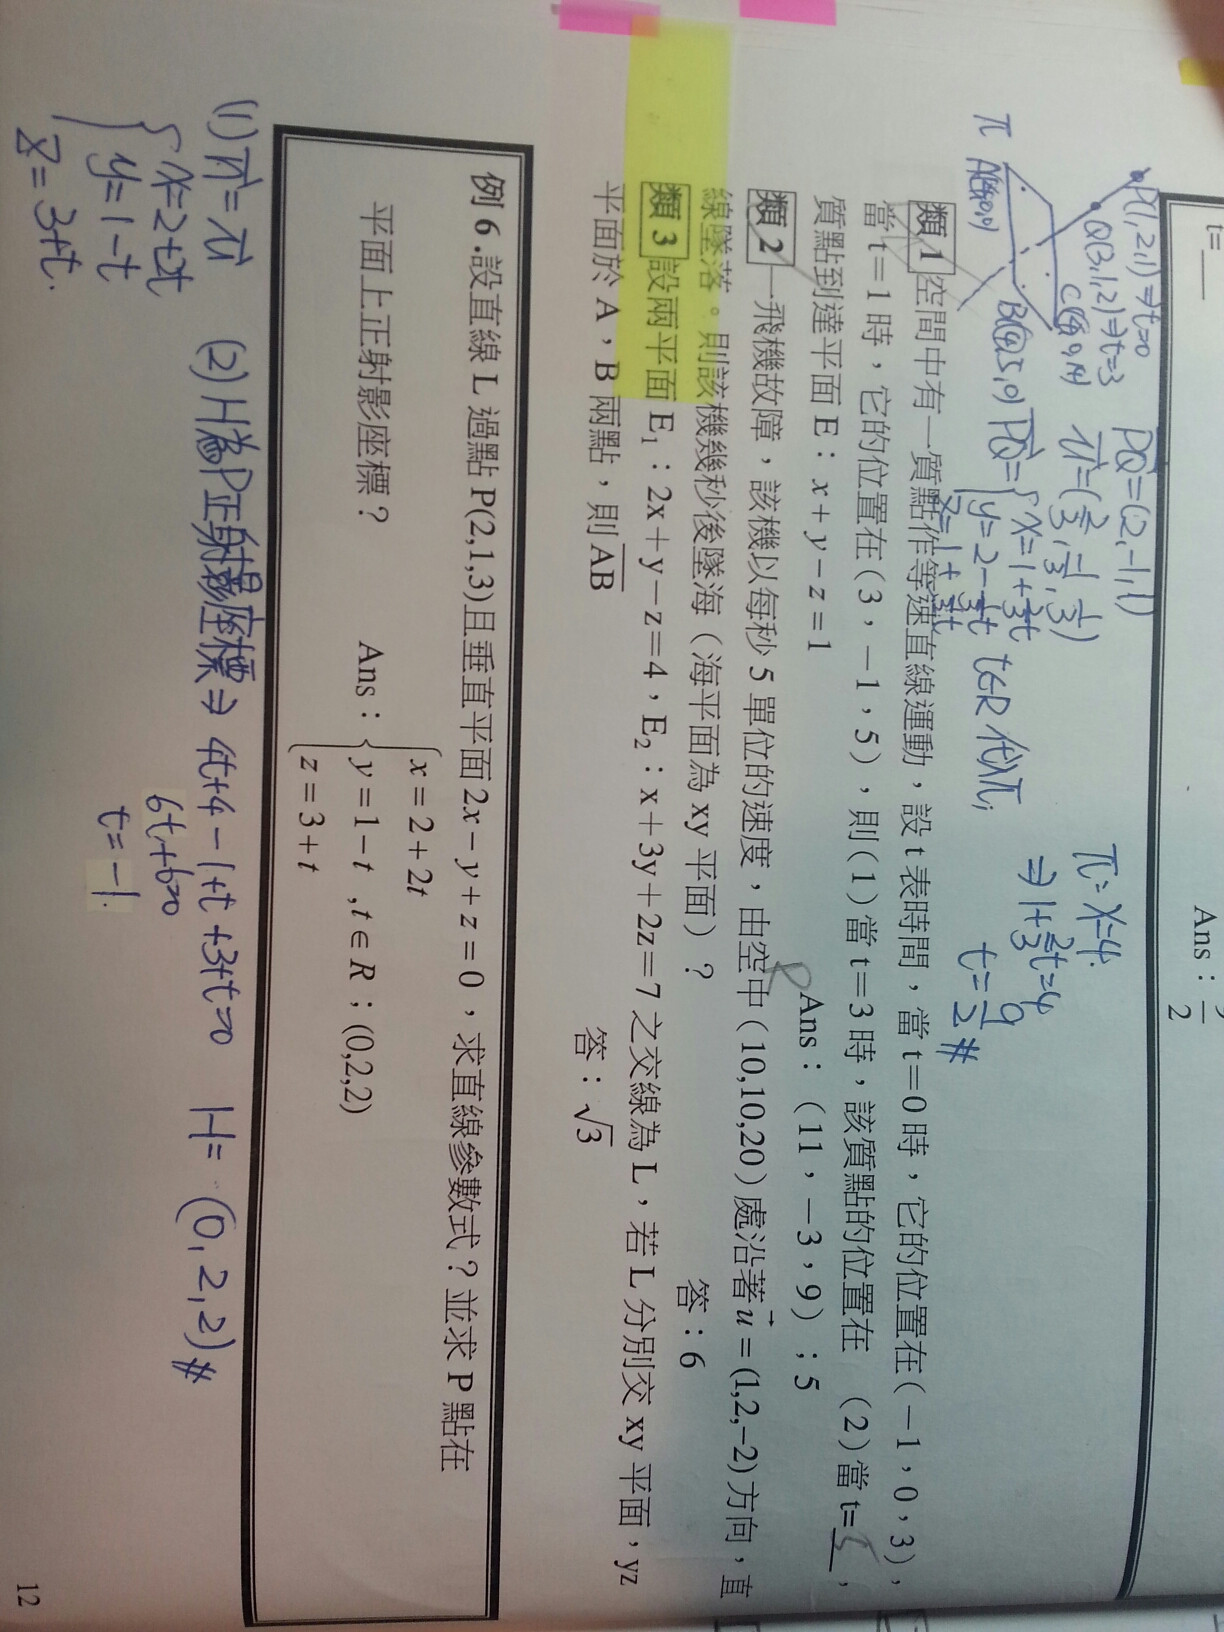 t=
Ans：
2
P(1,2,1)⇒t=0
Q(3,1,2)⇒t=3
π
PQ=(2,-1,1)
u=(2/3,-1/3,1/3)
PQ={x=1+2/3t
y=2-1/3t t∈R 代入π;
z=1+1/3t
π:x=4.
⇒1+2/3t=4
t=9/2#
類1 空間中有一質點作等速直線運動，設 t 表時間，當 t=0 時，它的位置在(−1，0，3)，
當 t=1 時，它的位置在(3，−1，5)，則(1)當 t=3 時，該質點的位置在 (2)當 t=__，
質點到達平面 E：x+y−z=1 Ans：(11，−3，9)；5
類2 一飛機故障，該機以每秒 5 單位的速度，由空中(10,10,20)處沿著 u=(1,2,−2)方向，直
線墜落。則該機幾秒後墜海（海平面為 xy 平面）？ 答：6
類3 設兩平面 E₁：2x+y−z=4，E₂：x+3y+2z=7 之交線為 L，若 L 分別交 xy 平面，yz
平面於 A，B 兩點，則 AB 答：√3
例 6.設直線 L 過點 P(2,1,3)且垂直平面 2x−y+z=0，求直線參數式？並求 P 點在
平面上正射影座標？ Ans：{x=2+2t
y=1−t ,t∈R；(0,2,2)
z=3+t
(1) n=u
{x=2+2t
y=1-t
z=3+t.
(2) H為P正射影座標⇒4t+4-1+t+3+t=0
6t+6=0
t=-1.
H=(0,2,2)#
12